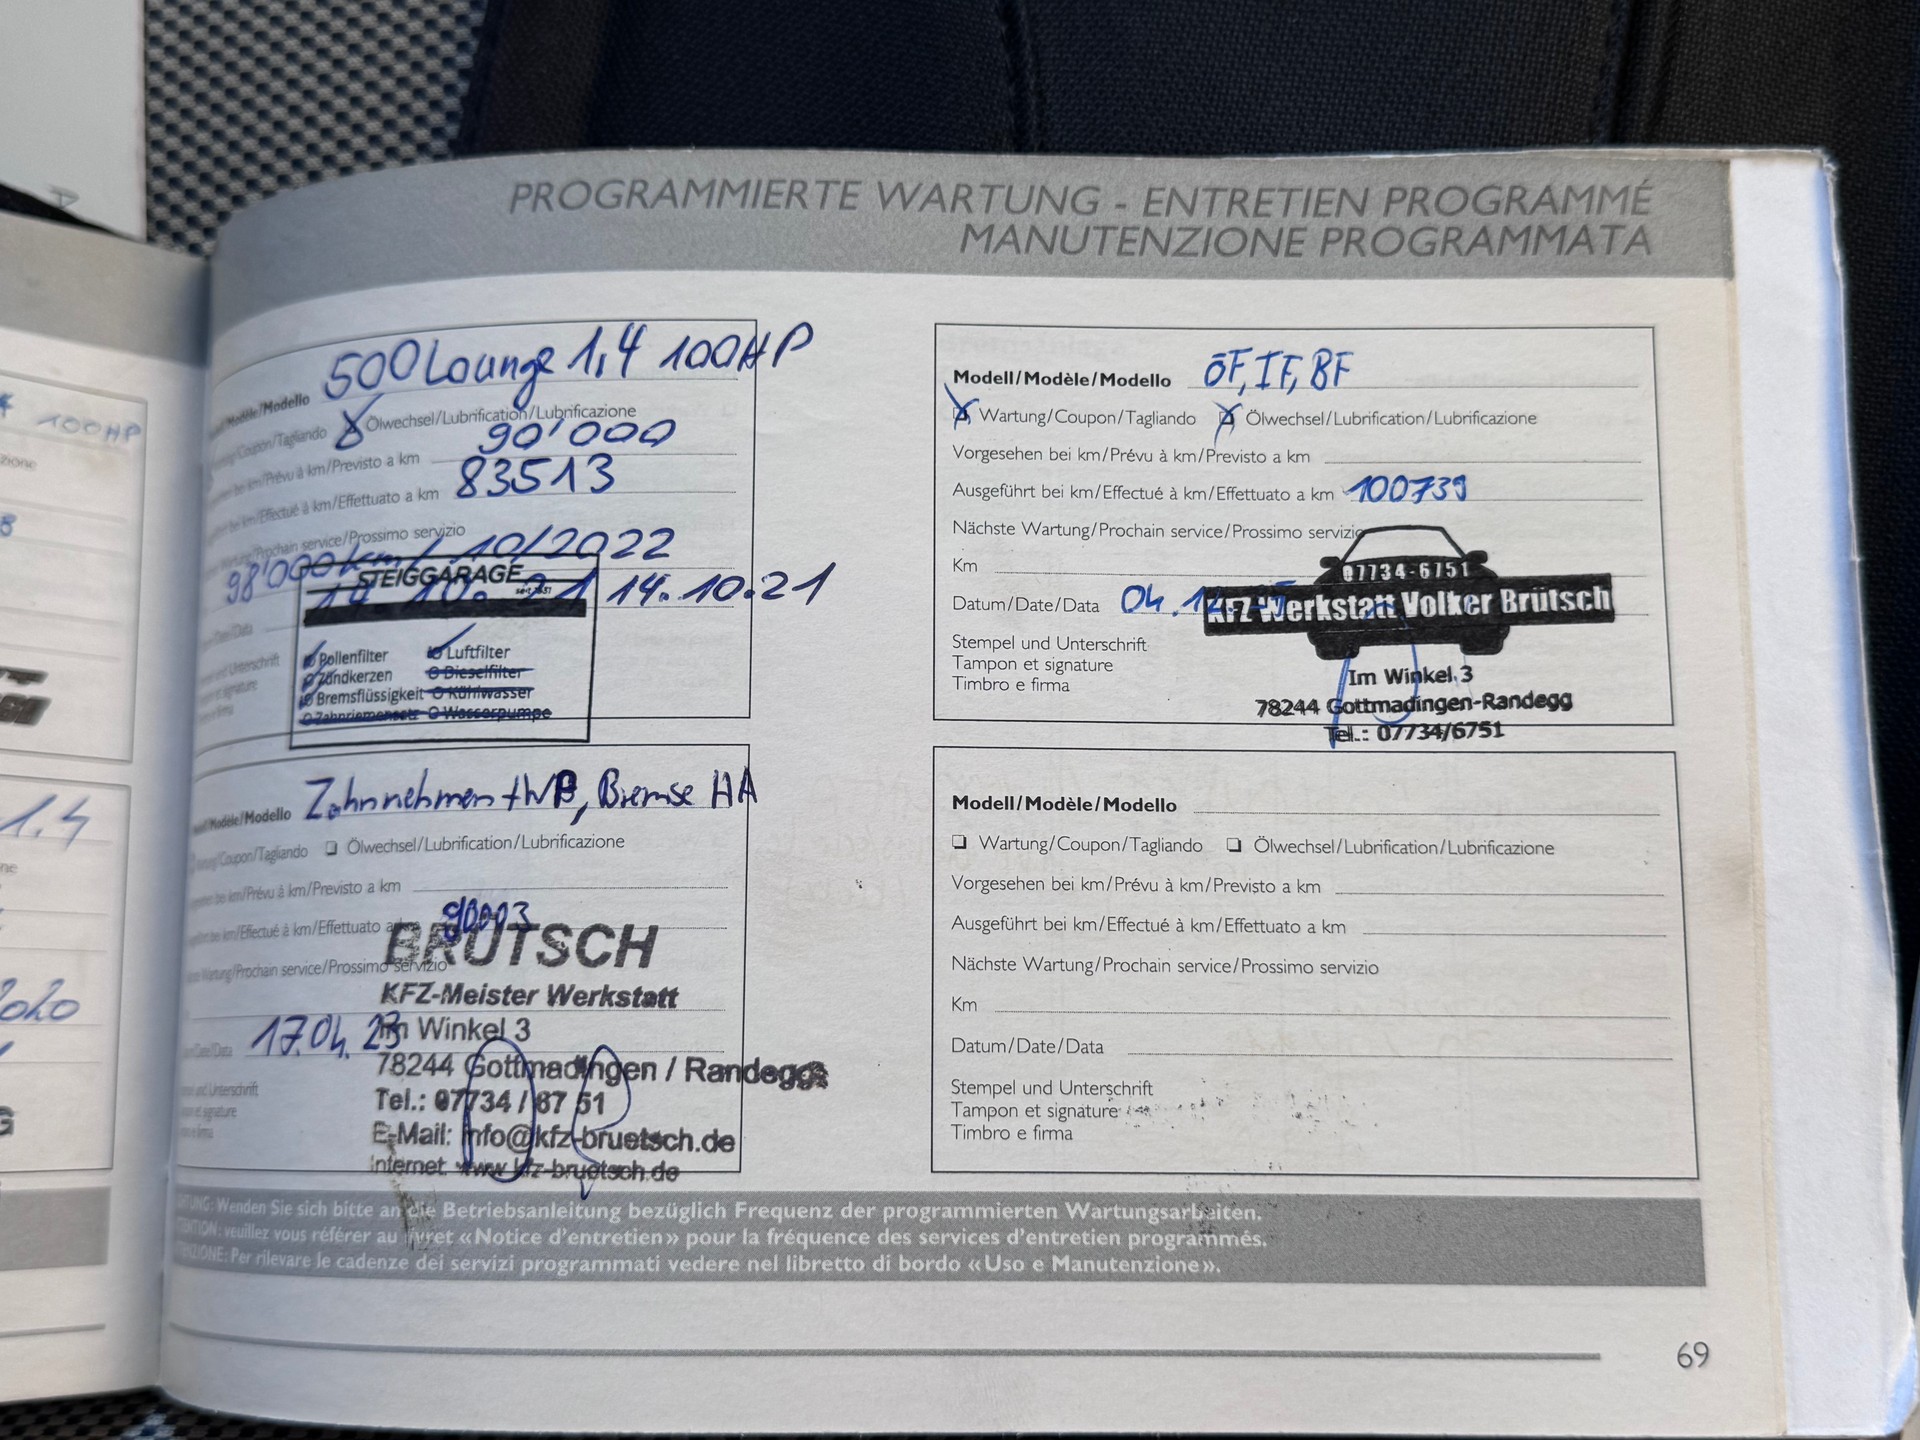 PROGRAMMIERTE WARTUNG - ENTRETIEN PROGRAMMÉ
MANUTENZIONE PROGRAMMATA
Modèle/Modello 500 Lounge 1,4 100HP
/Coupon/Tagliando Ölwechsel/Lubrification/Lubrificazione
bei km/Prévu à km/Previsto a km 90'000
bei km/Effectué à km/Effettuato a km 83513
Wartung/Prochain service/Prossimo servizio
98'000 km / 10/2022
14.10.21
STEIGGARAGE
Pollenfilter Luftfilter
Zündkerzen Dieselfilter
Bremsflüssigkeit Kühlwasser
Zahnriemensatz Wasserpumpe
Modèle/Modello Zahnriemen + WP, Bremse HA
/Coupon/Tagliando Ölwechsel/Lubrification/Lubrificazione
bei km/Prévu à km/Previsto a km
bei km/Effectué à km/Effettuato a
Wartung/Prochain service/Prossimo servizio
BRÜTSCH
KFZ-Meister Werkstatt
17.04.23
Im Winkel 3
78244 Gottmadingen / Randegg
Tel.: 07734 / 67 51
E-Mail: info@kfz-bruetsch.de
Internet: www.kfz-bruetsch.de
Modell/Modèle/Modello ÖF, IF, BF
Wartung/Coupon/Tagliando Ölwechsel/Lubrification/Lubrificazione
Vorgesehen bei km/Prévu à km/Previsto a km
Ausgeführt bei km/Effectué à km/Effettuato a km 100739
Nächste Wartung/Prochain service/Prossimo servizio
Km
07734-6751
Datum/Date/Data 04.12.
KFZ Werkstatt Volker Brütsch
Stempel und Unterschrift
Tampon et signature
Timbro e firma
Im Winkel 3
78244 Gottmadingen-Randegg
Tel.: 07734/6751
Modell/Modèle/Modello
Wartung/Coupon/Tagliando Ölwechsel/Lubrification/Lubrificazione
Vorgesehen bei km/Prévu à km/Previsto a km
Ausgeführt bei km/Effectué à km/Effettuato a km
Nächste Wartung/Prochain service/Prossimo servizio
Km
Datum/Date/Data
Stempel und Unterschrift
Tampon et signature
Timbro e firma
Wenden Sie sich bitte an die Betriebsanleitung bezüglich Frequenz der programmierten Wartungsarbeiten.
veuillez vous référer au livret «Notice d'entretien» pour la fréquence des services d'entretien programmés.
Per rilevare le cadenze dei servizi programmati vedere nel libretto di bordo «Uso e Manutenzione».
69
100HP
1.4
2020